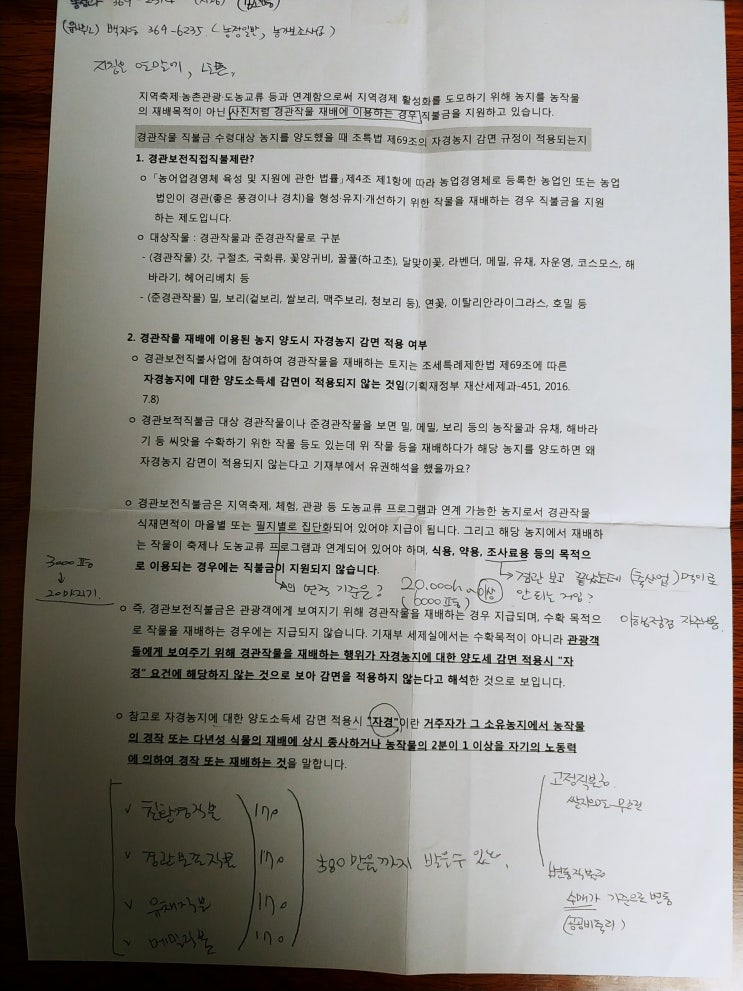 369-2374
백지수 369-6235 (농정일반, 농가보조사업)
지역축제·농촌관광·도농교류 등과 연계함으로써 지역경제 활성화를 도모하기 위해 농지를 농작물
의 재배목적이 아닌 사진처럼 경관작물 재배에 이용하는 경우 직불금을 지원하고 있습니다.
경관작물 직불금 수령대상 농지를 양도했을 때 조특법 제69조의 자경농지 감면 규정이 적용되는지
1. 경관보전직접직불제란?
ㅇ 「농어업경영체 육성 및 지원에 관한 법률」제4조 제1항에 따라 농업경영체로 등록한 농업인 또는 농업
법인이 경관(좋은 풍경이나 경치)을 형성·유지·개선하기 위한 작물을 재배하는 경우 직불금을 지원
하는 제도입니다.
ㅇ 대상작물 : 경관작물과 준경관작물로 구분
- (경관작물) 갓, 구절초, 국화류, 꽃양귀비, 꿀풀(하고초), 달맞이꽃, 라벤더, 메밀, 유채, 자운영, 코스모스, 해
바라기, 헤어리베치 등
- (준경관작물) 밀, 보리(겉보리, 쌀보리, 맥주보리, 청보리 등), 연꽃, 이탈리안라이그라스, 호밀 등
2. 경관작물 재배에 이용된 농지 양도시 자경농지 감면 적용 여부
ㅇ 경관보전직불사업에 참여하여 경관작물을 재배하는 토지는 조세특례제한법 제69조에 따른
자경농지에 대한 양도소득세 감면이 적용되지 않는 것임(기획재정부 재산세제과-451, 2016.
7.8)
ㅇ 경관보적직불금 대상 경관작물이나 준경관작물을 보면 밀, 메밀, 보리 등의 농작물과 유채, 해바라
기 등 씨앗을 수확하기 위한 작물 등도 있는데 위 작물 등을 재배하다가 해당 농지를 양도하면 왜
자경농지 감면이 적용되지 않는다고 기재부에서 유권해석을 했을까요?
ㅇ 경관보전직불금은 지역축제, 체험, 관광 등 도농교류 프로그램과 연계 가능한 농지로서 경관작물
식재면적이 마을별 또는 필지별로 집단화되어 있어야 지급이 됩니다. 그리고 해당 농지에서 재배하
는 작물이 축제나 도농교류 프로그램과 연계되어 있어야 하며, 식용, 약용, 조사료용 등의 목적으
로 이용되는 경우에는 직불금이 지원되지 않습니다.
3000평
↓
20마지기.
의 면적 기준은?
20.000h 이상
(6000평)
경관 보고 끝났는데 (축산업) 먹이로
안 되는 거임?
이행점검
ㅇ 즉, 경관보전직불금은 관광객에게 보여지기 위해 경관작물을 재배하는 경우 지급되며, 수확 목적으
로 작물을 재배하는 경우에는 지급되지 않습니다. 기재부 세제실에서는 수확목적이 아니라 관광객
들에게 보여주기 위해 경관작물을 재배하는 행위가 자경농지에 대한 양도세 감면 적용시 "자
경" 요건에 해당하지 않는 것으로 보아 감면을 적용하지 않는다고 해석한 것으로 보입니다.
ㅇ 참고로 자경농지에 대한 양도소득세 감면 적용시 "자경"이란 거주자가 그 소유농지에서 농작물
의 경작 또는 다년성 식물의 재배에 상시 종사하거나 농작물의 2분이 1 이상을 자기의 노동력
에 의하여 경작 또는 재배하는 것을 말합니다.
∨ 친환경직불 170
∨ 경관보조직불 170
∨ 유채직불 170
∨ 메밀직불 170
만원까지 받을수 있는.
고정직불금
변동직불금
수매가 기준으로 변동
(공공비축미)